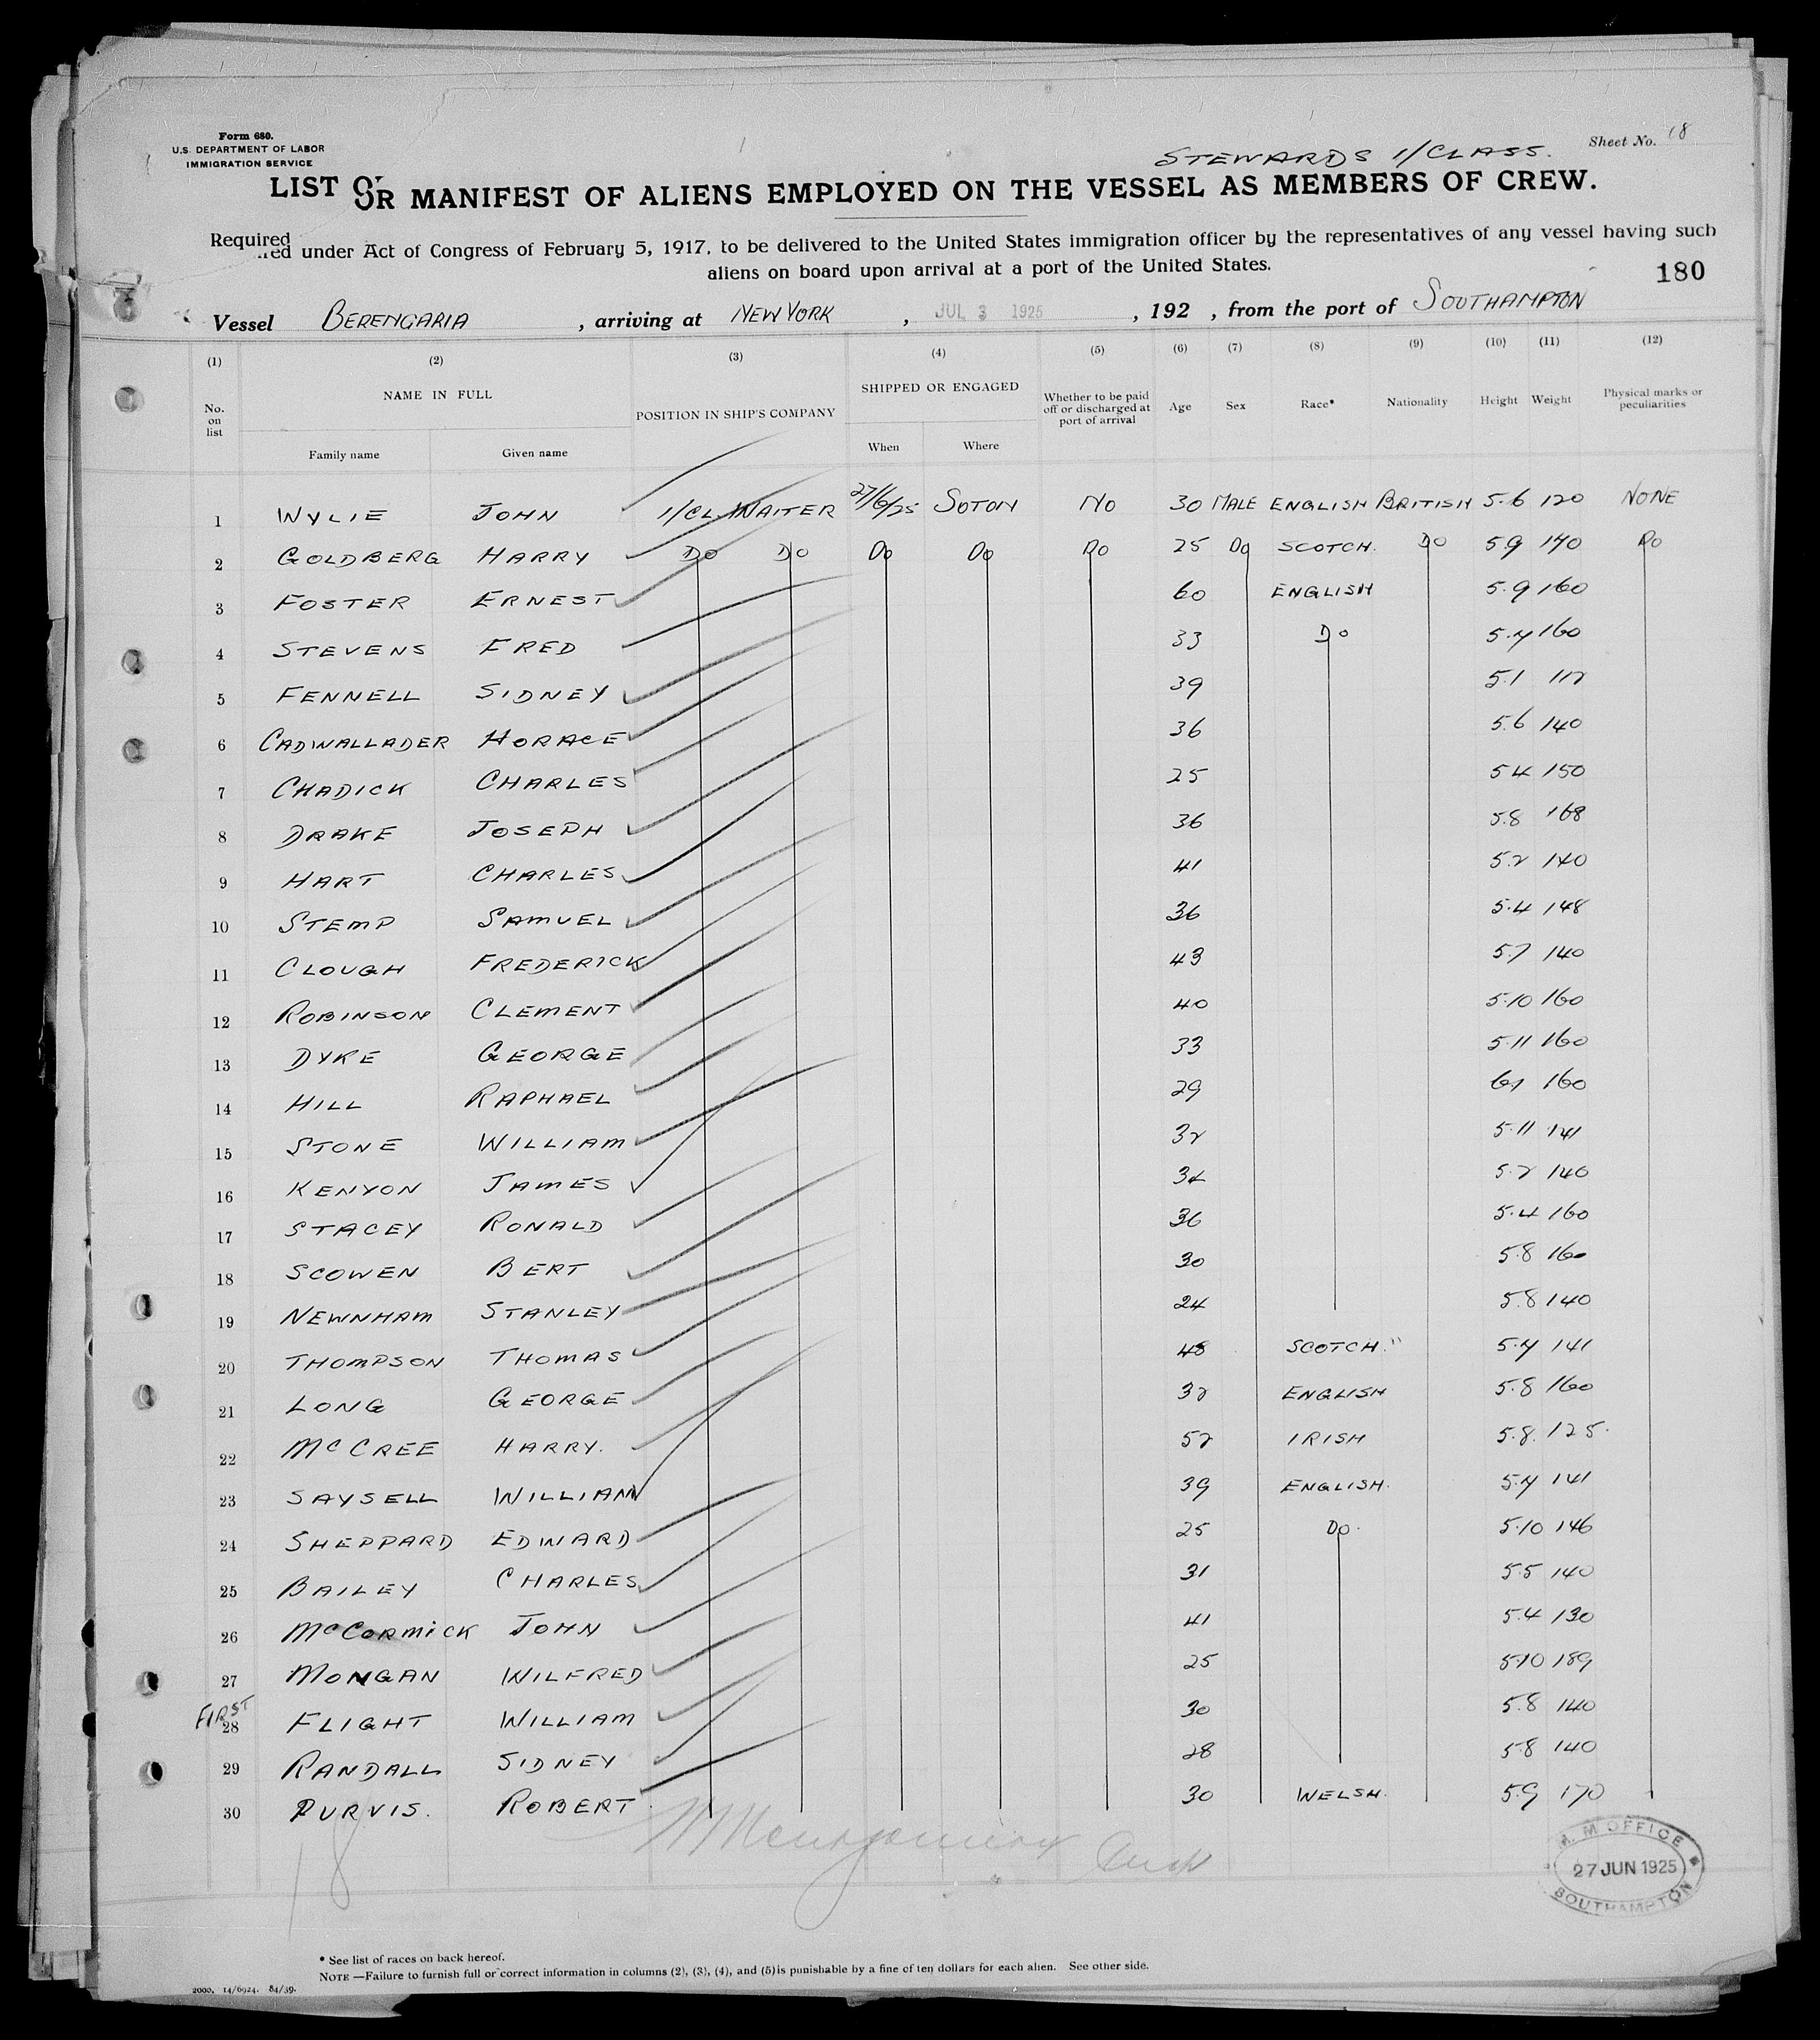 Form 680.
U.S. DEPARTMENT OF LABOR
IMMIGRATION SERVICE
STEWARDS 1/CLASS.
Sheet No. 18
LIST OR MANIFEST OF ALIENS EMPLOYED ON THE VESSEL AS MEMBERS OF CREW.
Required under Act of Congress of February 5, 1917, to be delivered to the United States immigration officer by the representatives of any vessel having such
aliens on board upon arrival at a port of the United States.
180
Vessel BERENGARIA, arriving at NEW YORK, JUL 3 1925, 192 , from the port of SOUTHAMPTON
(1) (2) (3) (4) (5) (6) (7) (8) (9) (10) (11) (12)
No. on list NAME IN FULL Family name Given name POSITION IN SHIP'S COMPANY SHIPPED OR ENGAGED When Where Whether to be paid off or discharged at port of arrival Age Sex Race* Nationality Height Weight Physical marks or peculiarities
1 WYLIE JOHN 1/CL. WAITER 27/6/25 SOTON NO 30 MALE ENGLISH BRITISH 5.6 120 NONE
2 GOLDBERG HARRY DO DO DO DO DO 25 DO SCOTCH. DO 5.9 140 DO
3 FOSTER ERNEST 60 ENGLISH 5.9 160
4 STEVENS FRED 33 DO 5.7 160
5 FENNELL SIDNEY 39 5.1 112
6 CADWALLADER HORACE 36 5.6 140
7 CHADICK CHARLES 25 5.4 150
8 DRAKE JOSEPH 36 5.8 168
9 HART CHARLES 41 5.2 140
10 STEMP SAMUEL 36 5.4 148
11 CLOUGH FREDERICK 43 5.7 140
12 ROBINSON CLEMENT 40 5.10 160
13 DYKE GEORGE 33 5.11 160
14 HILL RAPHAEL 29 6.1 160
15 STONE WILLIAM 32 5.11 141
16 KENYON JAMES 34 5.2 140
17 STACEY RONALD 36 5.4 160
18 SCOWEN BERT 30 5.8 160
19 NEWNHAM STANLEY 24 5.8 140
20 THOMPSON THOMAS 48 SCOTCH." 5.7 141
21 LONG GEORGE 32 ENGLISH 5.8 160
22 McCREE HARRY. 52 IRISH 5.8. 125.
23 SAYSELL WILLIAM 39 ENGLISH. 5.7 141
24 SHEPPARD EDWARD 25 DO. 5.10 146
25 BAILEY CHARLES 31 5.5 140
26 McCORMICK JOHN 41 5.4 130
27 MONGAN WILFRED 25 5.10 189
FIRST
28 FLIGHT WILLIAM 30 5.8 140
29 RANDALL SIDNEY 28 5.8 140
30 PURVIS. ROBERT. 30 WELSH. 5.9 170
18
M. M OFFICE
27 JUN 1925
SOUTHAMPTON
* See list of races on back hereof.
NOTE —Failure to furnish full or correct information in columns (2), (3), (4), and (5) is punishable by a fine of ten dollars for each alien. See other side.
2000. 14/6924. 84/39.